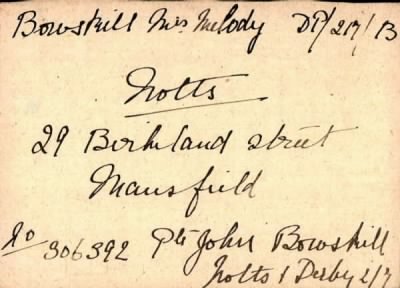 Bowskill Mrs Melody DP/217/B
Notts
29 Birkland street
Mansfield
No 306392 Pte John Bowskill
Notts & Derby 2/7